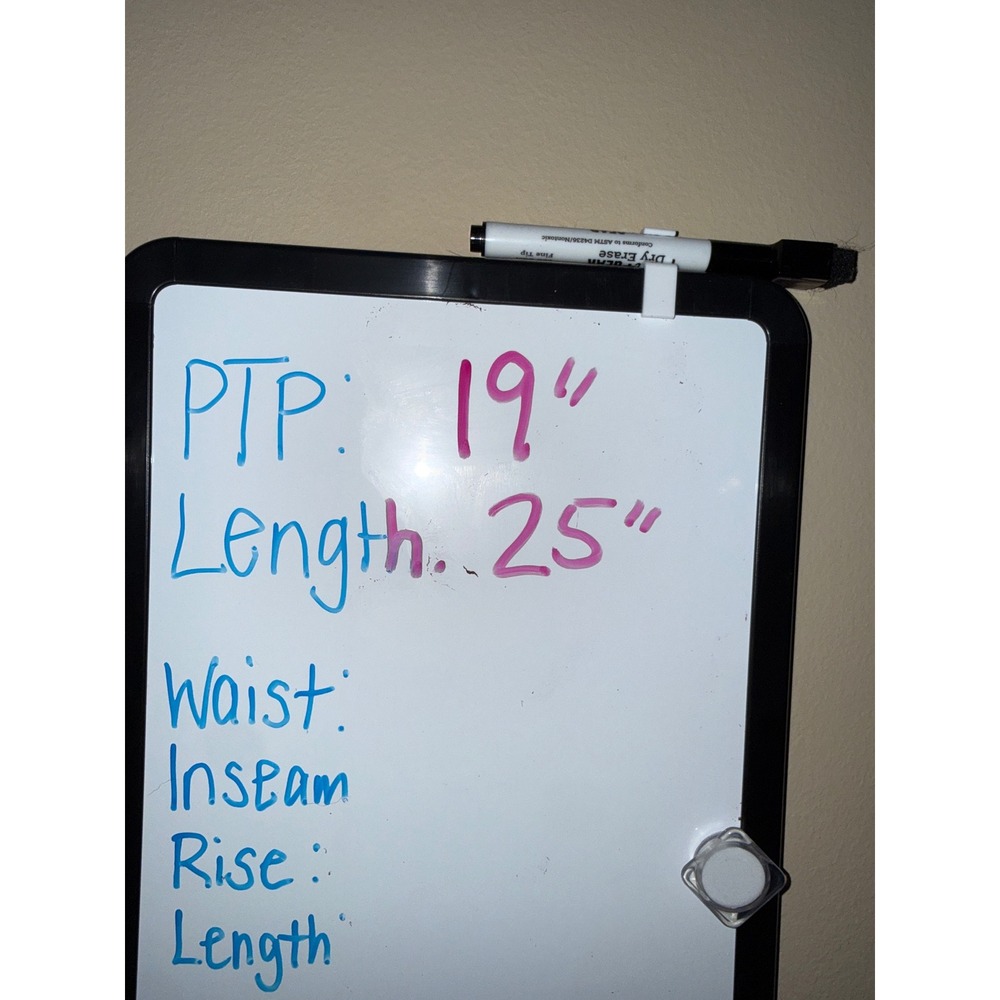 Conforms to ASTM D4236/Nontoxic
Dry Erase
Fine Tip
PTP: 19"
Length. 25"
Waist:
Inseam
Rise:
Length: